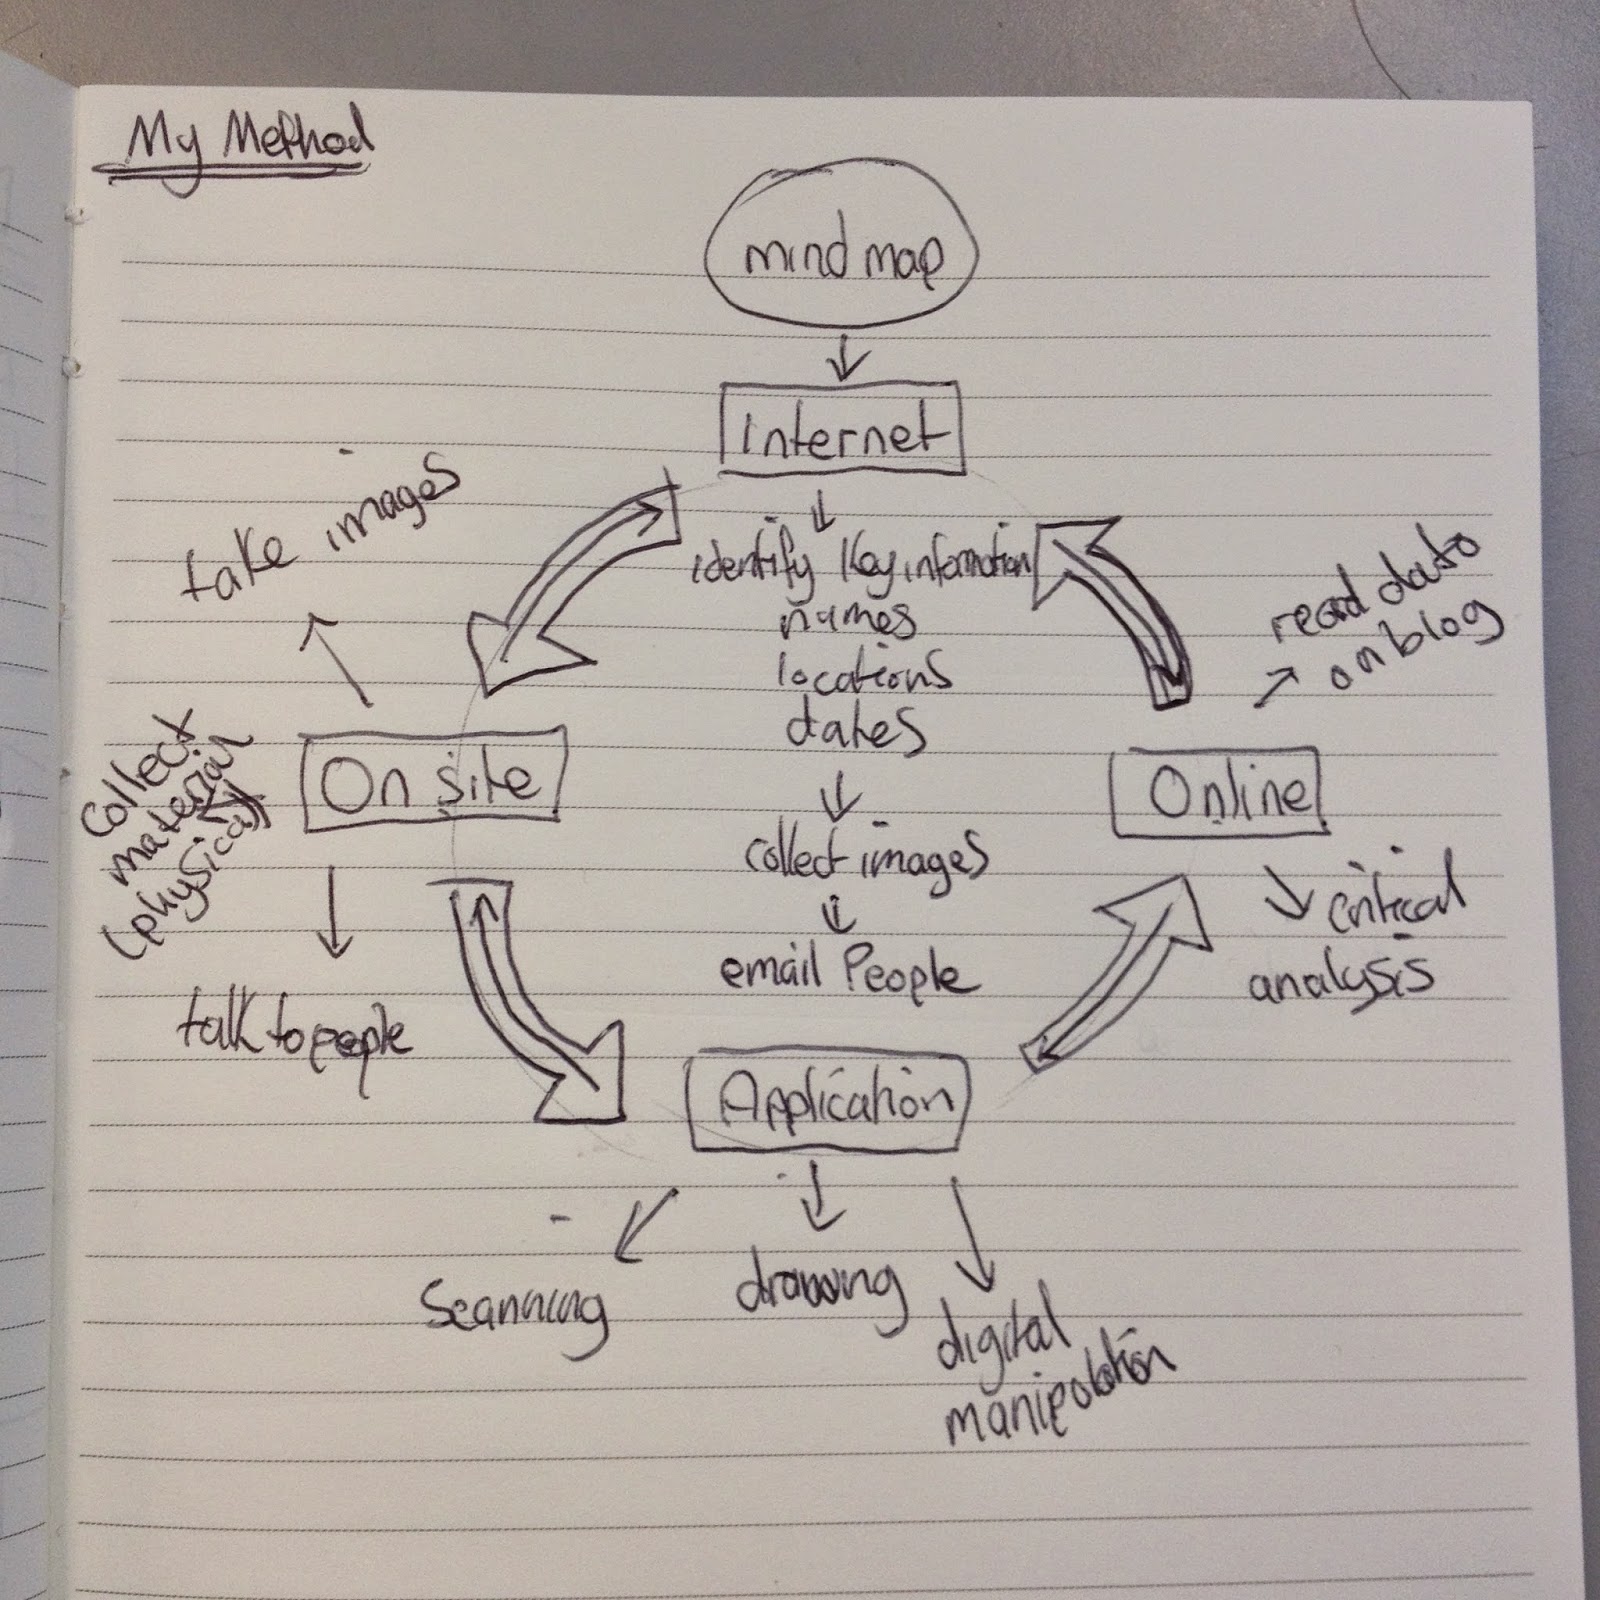 My Method
mind map
Internet
identify key information
names
locations
dates
collect images
email People
take images
On site
collect
material
(physical)
talk to people
read data
on blog
Online
critical
analysis
Application
Scanning
drawing
digital
manipulation